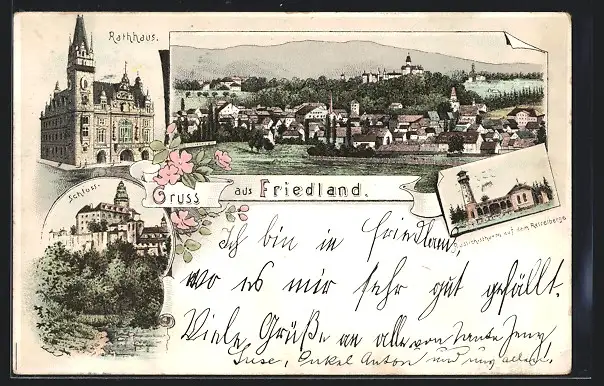 Rathhaus.
Schloss.
Gruss aus Friedland.
Aussichtsthurm auf dem Resselberge
Ich bin in Friedland,
wo es mir sehr gut gefällt.
Viele Grüße an alle von Tante Jeny
Suse, Onkel Anton und uns allen!